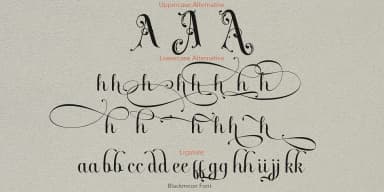 Uppercase Alternative
A A A
Lowercase Alternative
h h h h h h h h
h h h h h h
Ligature
aa bb cc dd ee ff gg hh ii jj kk
Blackmoon Font